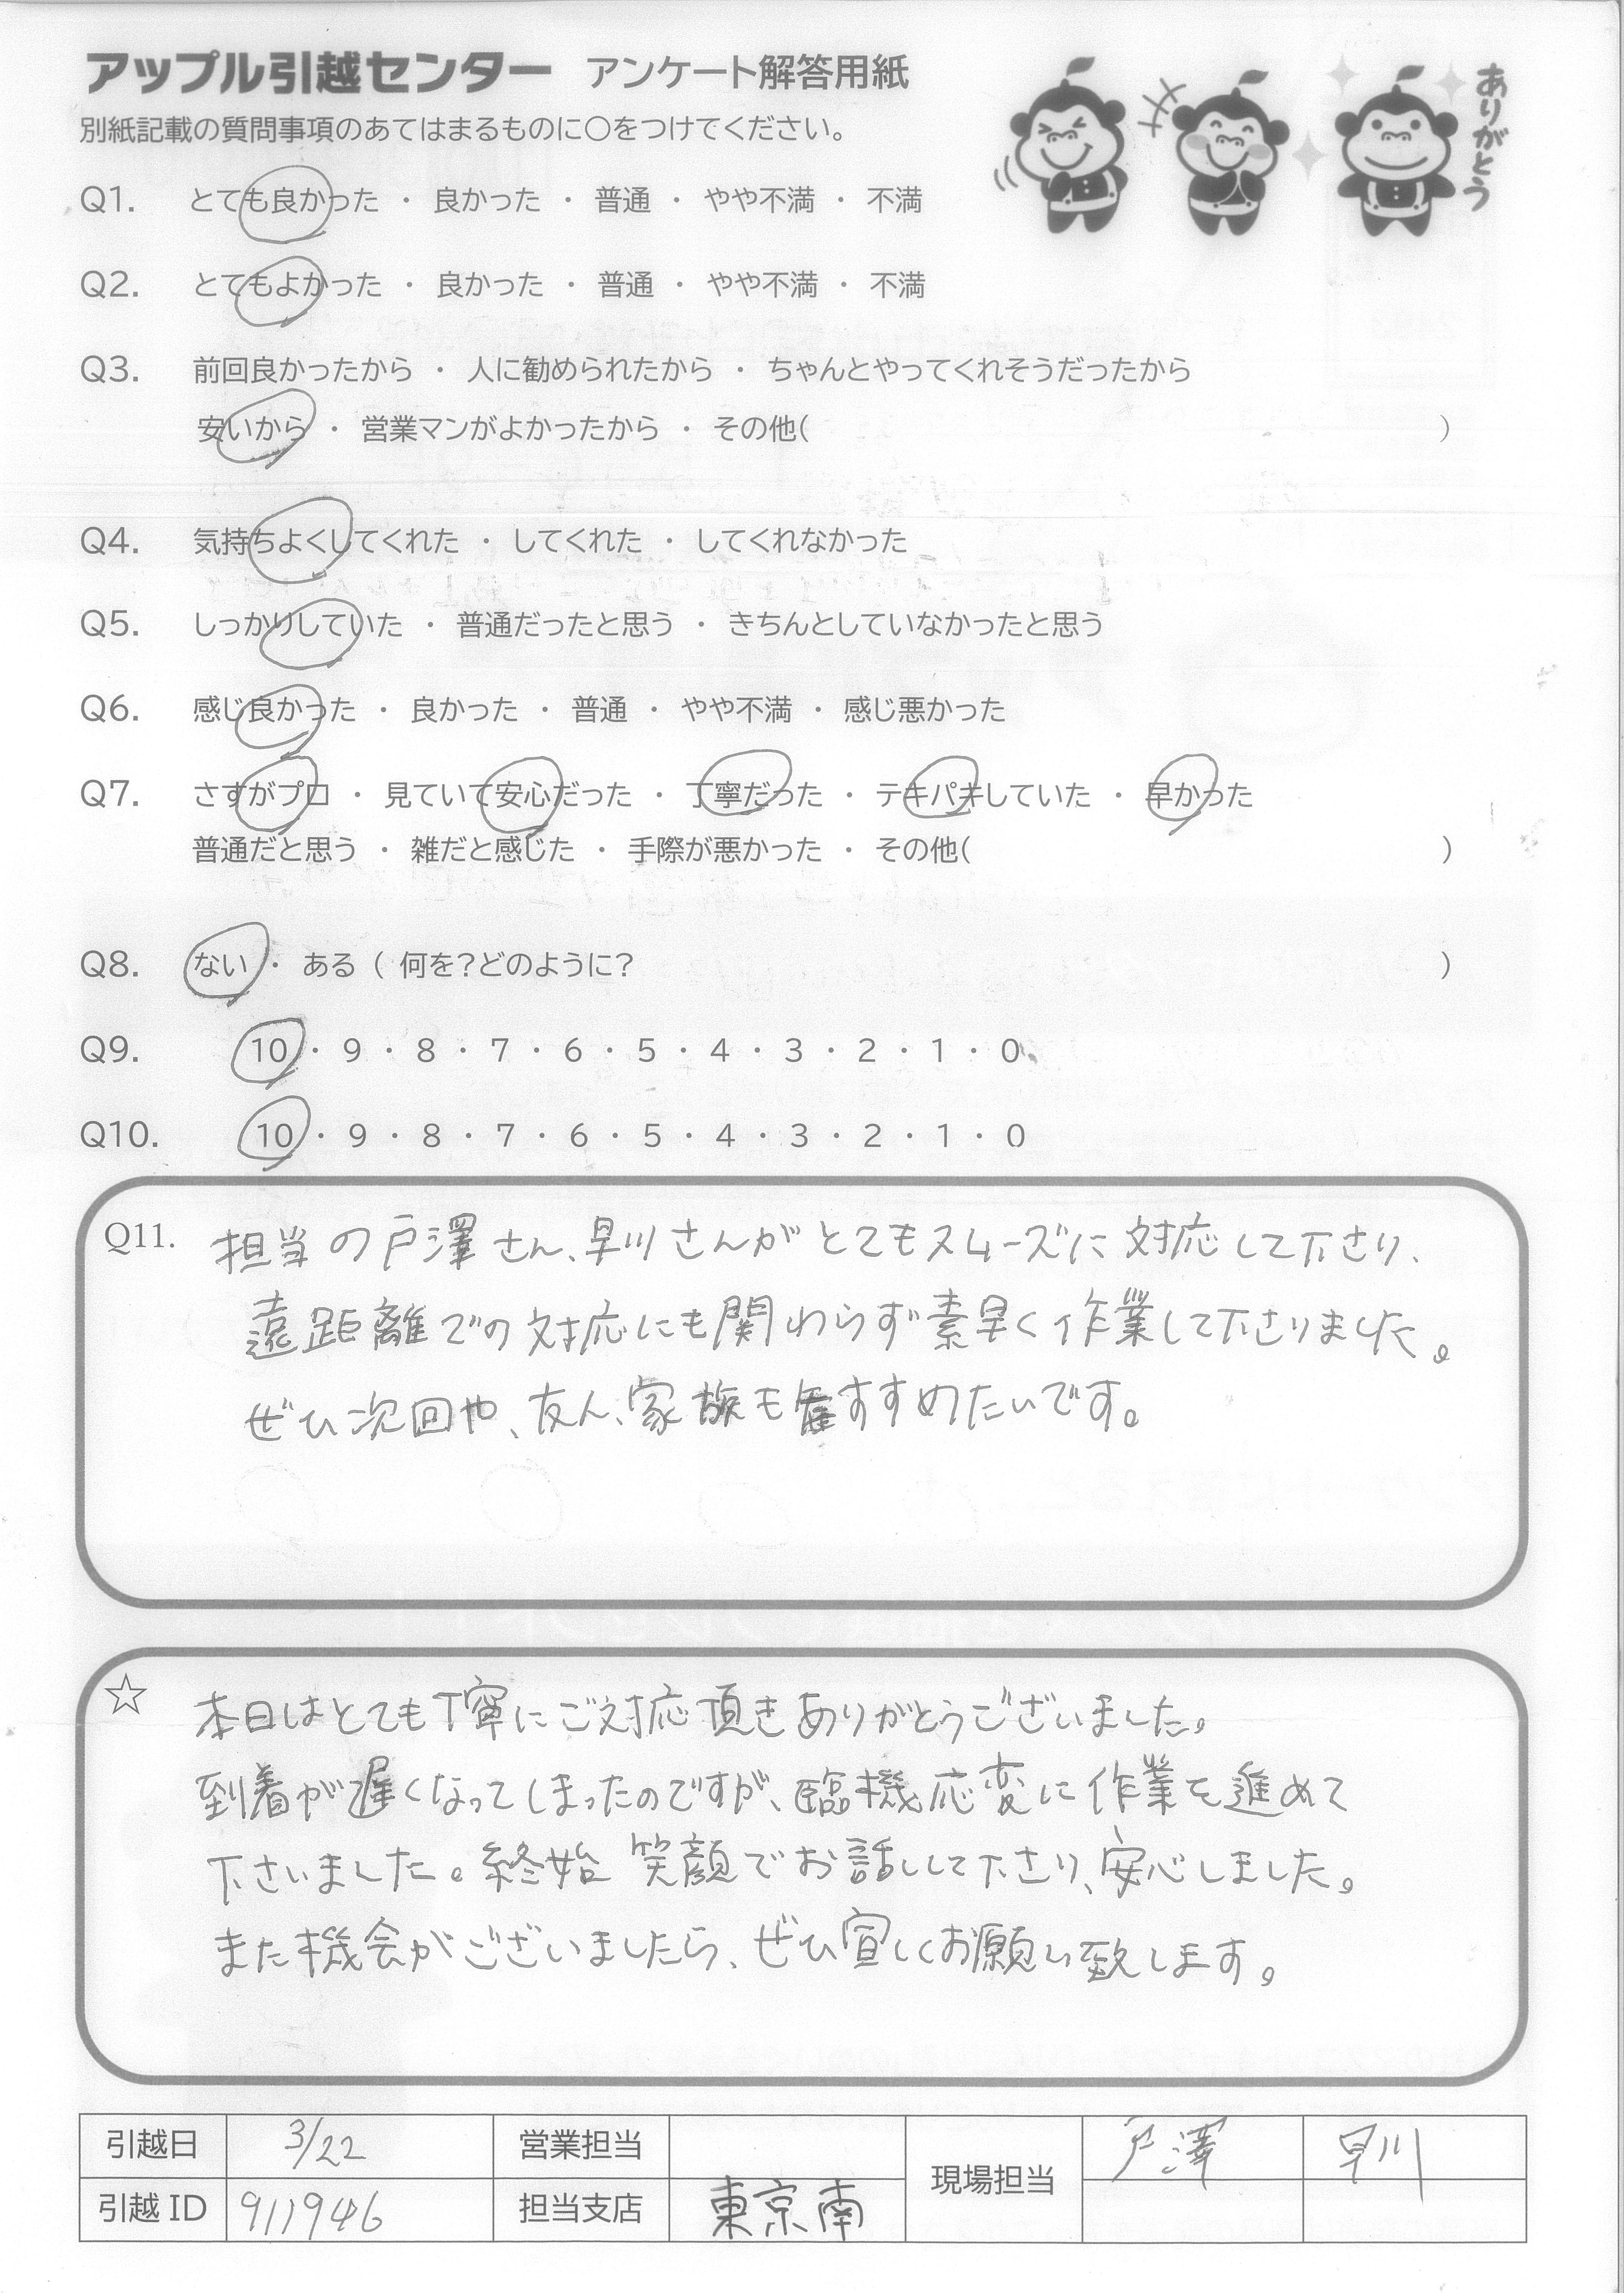 アップル引越センター アンケート解答用紙
ありがとう
別紙記載の質問事項のあてはまるものに○をつけてください。
Q1. とても良かった ・ 良かった ・ 普通 ・ やや不満 ・ 不満
Q2. とてもよかった ・ 良かった ・ 普通 ・ やや不満 ・ 不満
Q3. 前回良かったから ・ 人に勧められたから ・ ちゃんとやってくれそうだったから
安いから ・ 営業マンがよかったから ・ その他( )
Q4. 気持ちよくしてくれた ・ してくれた ・ してくれなかった
Q5. しっかりしていた ・ 普通だったと思う ・ きちんとしていなかったと思う
Q6. 感じ良かった ・ 良かった ・ 普通 ・ やや不満 ・ 感じ悪かった
Q7. さすがプロ ・ 見ていて安心だった ・ 丁寧だった ・ テキパキしていた ・ 早かった
普通だと思う ・ 雑だと感じた ・ 手際が悪かった ・ その他( )
Q8. ない ・ ある ( 何を?どのように? )
Q9. 10 ・ 9 ・ 8 ・ 7 ・ 6 ・ 5 ・ 4 ・ 3 ・ 2 ・ 1 ・ 0
Q10. 10 ・ 9 ・ 8 ・ 7 ・ 6 ・ 5 ・ 4 ・ 3 ・ 2 ・ 1 ・ 0
Q11. 担当の戸澤さん、早川さんがとてもスムーズに対応して下さり、
遠距離での対応にも関わらず素早く作業して下さりました。
ぜひ次回や、友人、家族もすすめたいです。
☆ 本日はとても丁寧にご対応頂きありがとうございました。
到着が遅くなってしまったのですが、臨機応変に作業を進めて
下さいました。終始笑顔でお話しして下さり、安心しました。
また機会がございましたら、ぜひ宜しくお願い致します。
引越日 3/22 営業担当 現場担当 戸澤 早川
引越ID 911946 担当支店 東京南